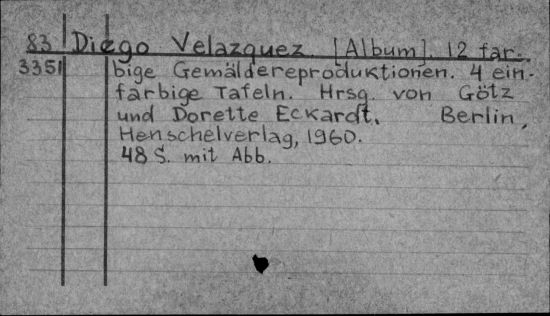 83 Diego Velazquez. [Album]. 12 far-
3351 bige Gemäldereproduktionen. 4 ein-
farbige Tafeln. Hrsg. von Götz
und Dorette Eckardt. Berlin,
Henschelverlag, 1960.
48 S. mit Abb.